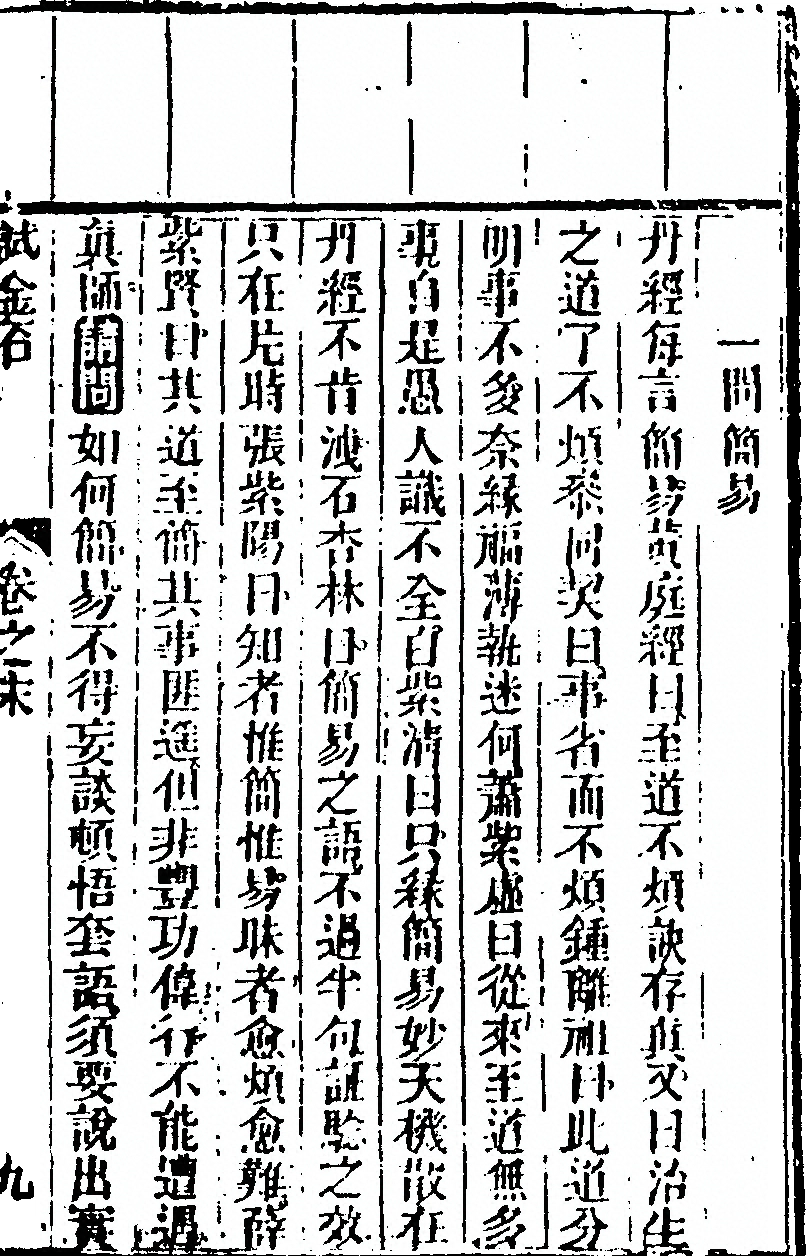 一問簡易
丹經每言簡易黃庭經曰至道不煩訣存真又曰治生
之道了不煩叅同契曰事省而不煩鍾離祖曰此道分
明事不多奈緣福薄執迷何蕭紫虛曰從來至道無多
事自是愚人識不全白紫清曰只緣簡易妙天機散在
丹經不肯洩石杏林曰簡易之語不過半句証騐之效
只在片時張紫陽曰知者惟簡惟易昧者愈煩愈難薛
紫賢曰其道至簡其事匪遥但非豐功偉行不能遭遇
真師請問如何簡易不得妄談頓悟套語須要說出實
試金石
卷之末
九